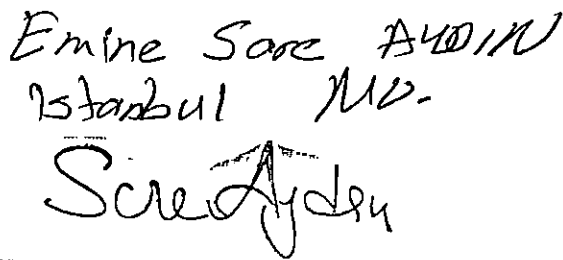 Emine Sare AYDIN
İstanbul Mv.
Sare Aydın